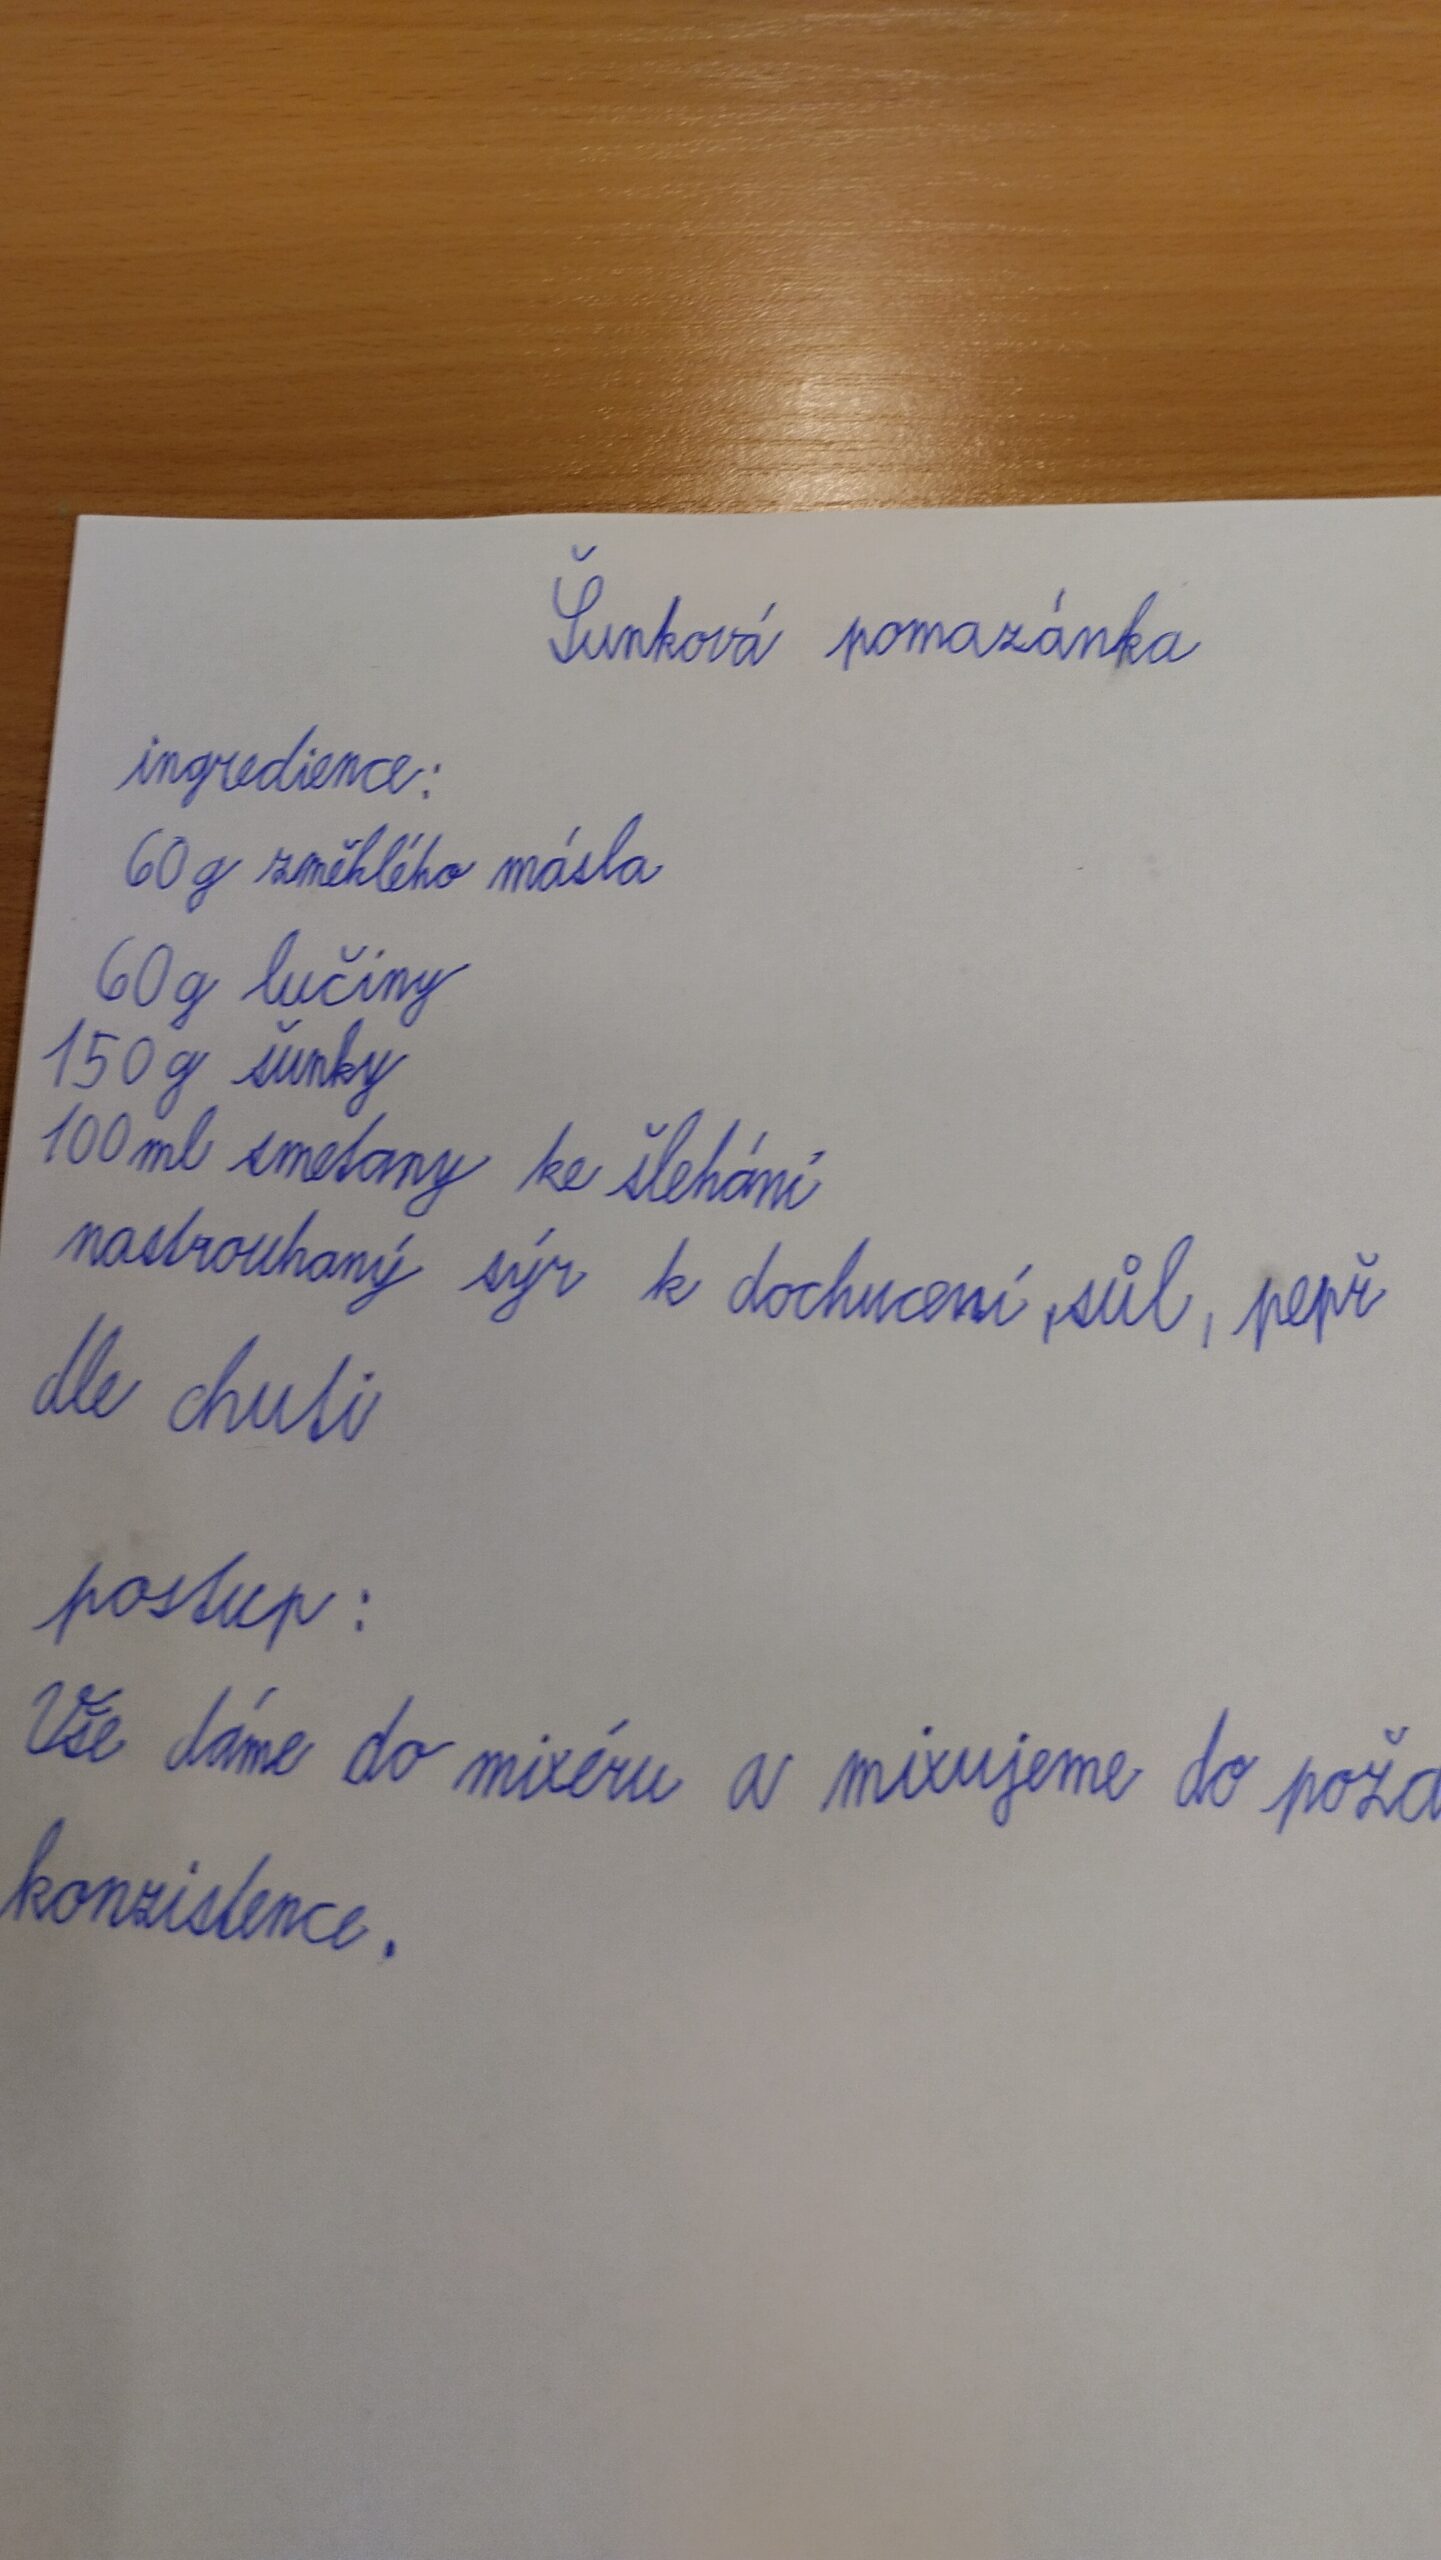 Šunková pomazánka
ingredience:
60g změklého másla
60g lučiny
150g šunky
100ml smetany ke šlehání
nastrouhaný sýr k dochucení, sůl, pepř
dle chuti
postup:
Vše dáme do mixéru a mixujeme do
konzistence.